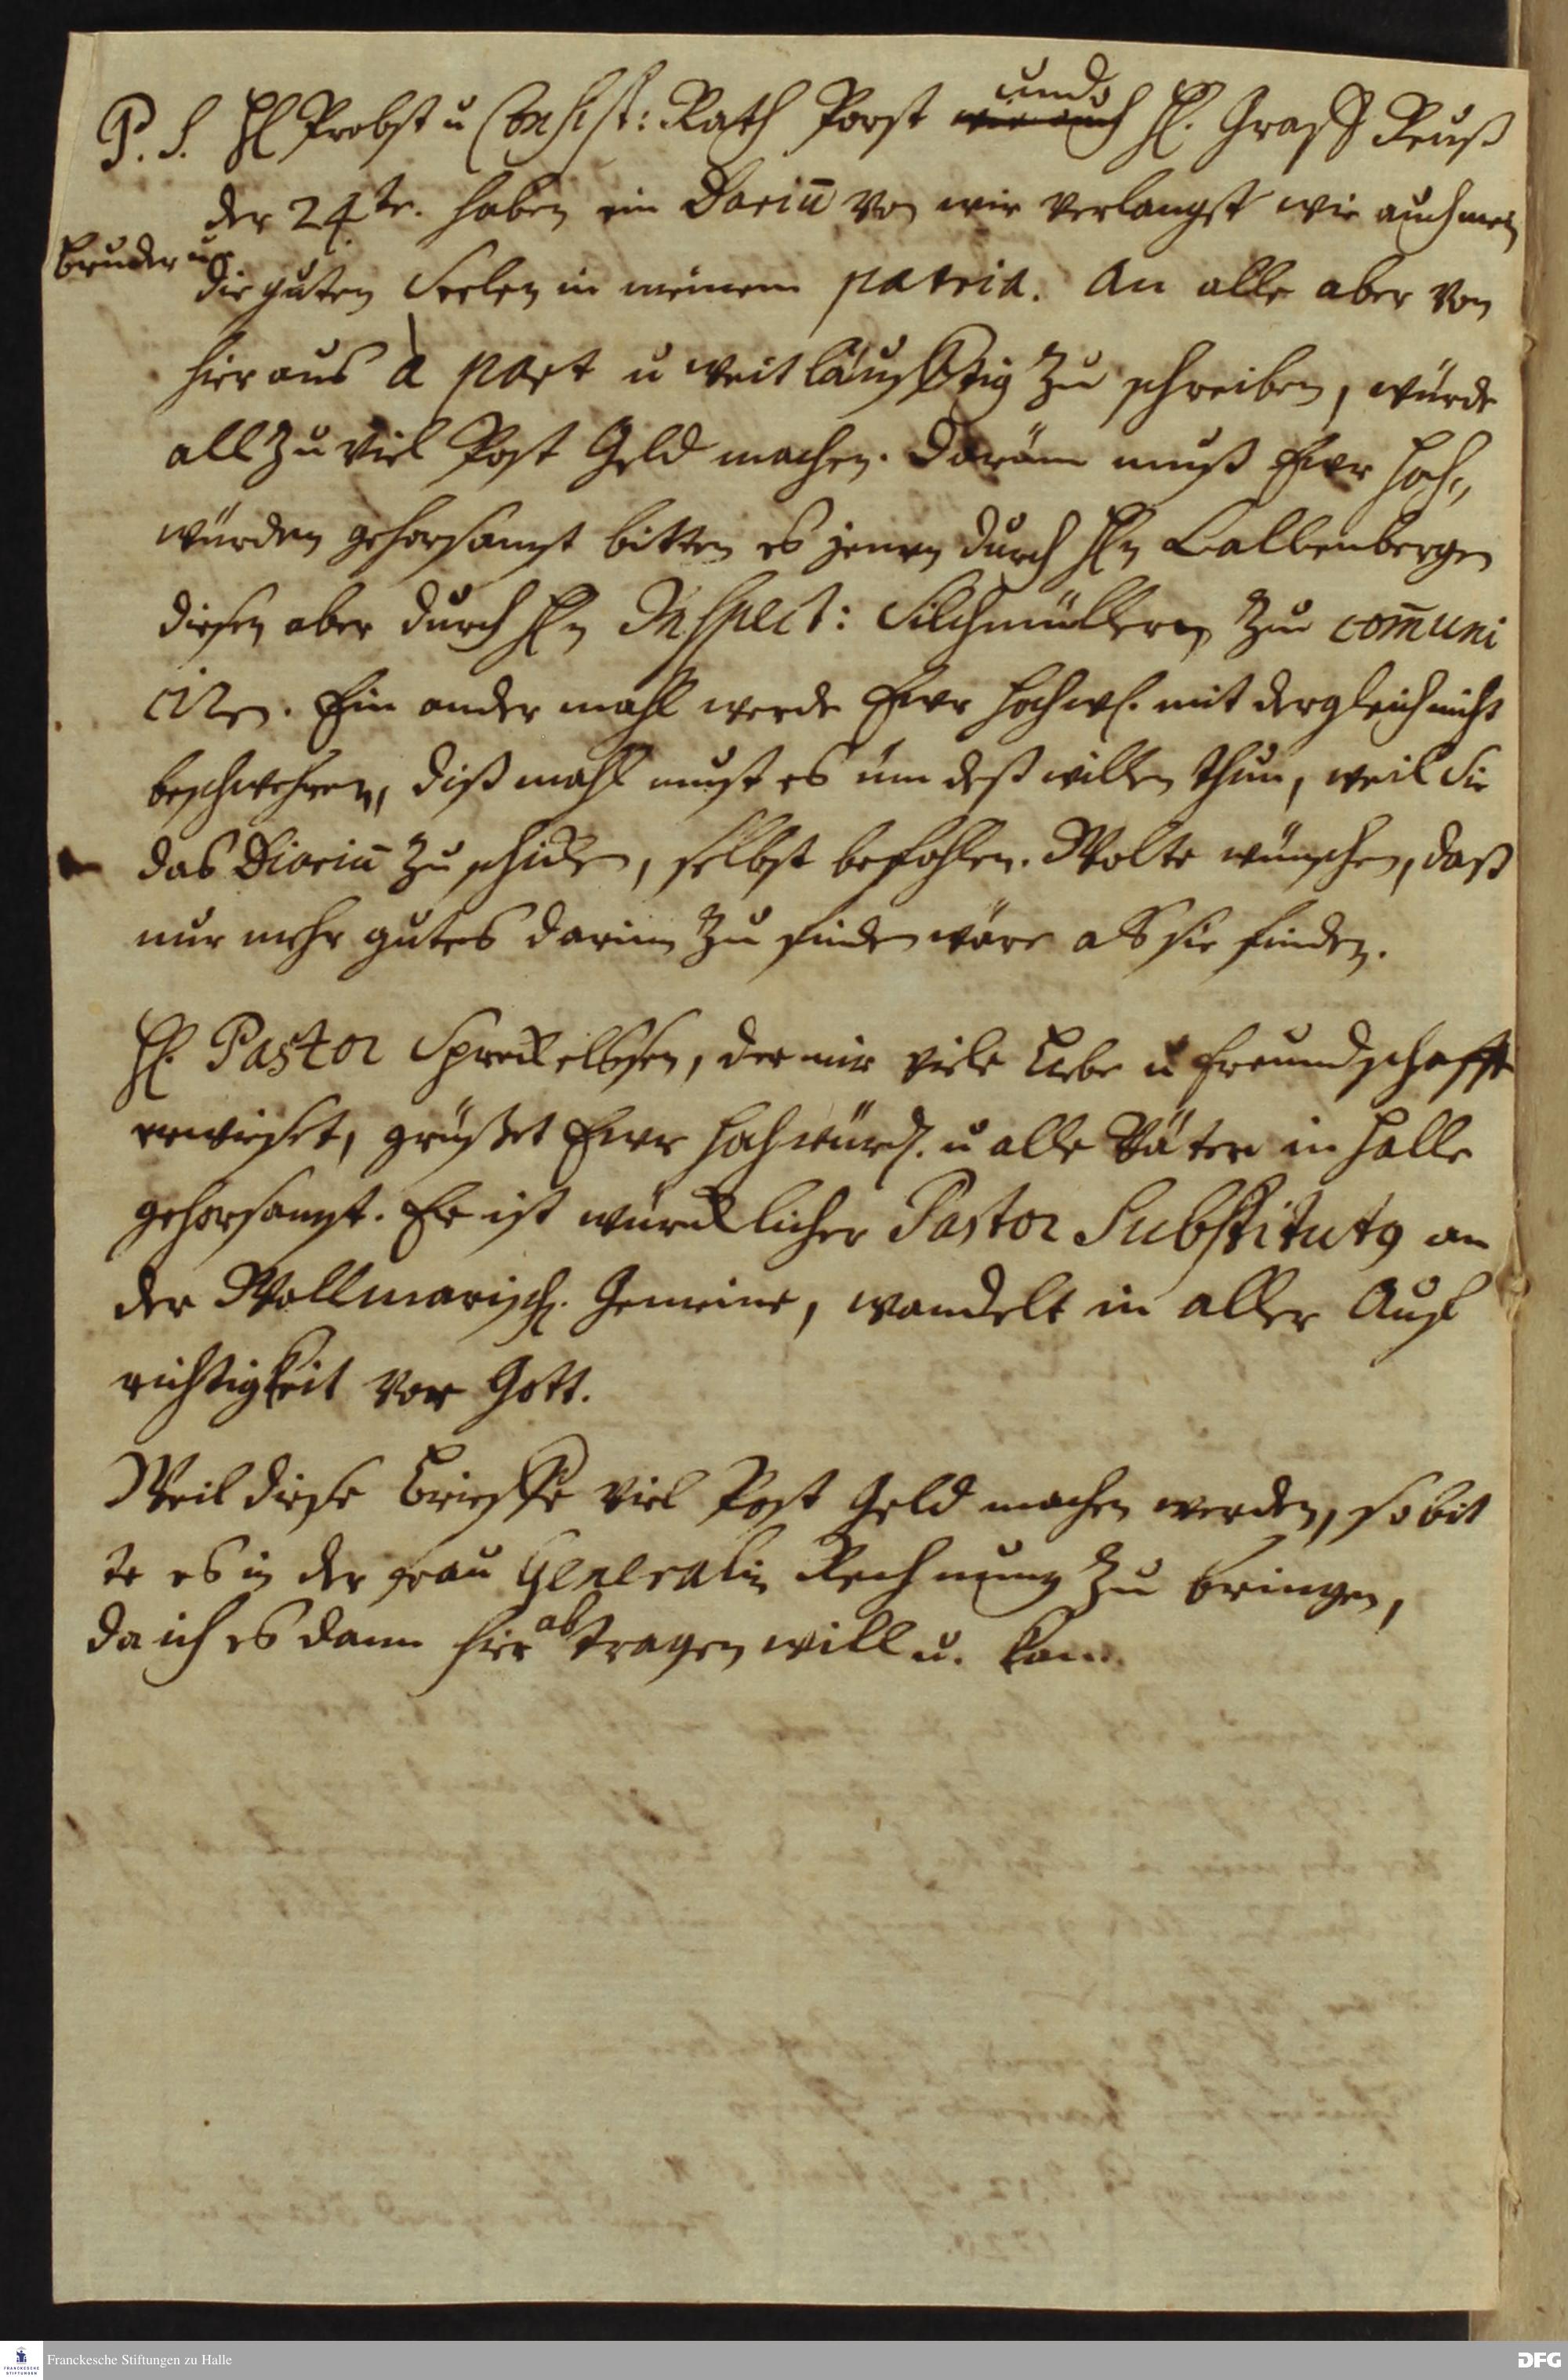 P. S. H Probst u Consist: Rath Porst wie auch und H. Graff Reuß
der 24te. haben ein Dariū von mir verlangst wie auch mein
bruder u
die guten Seelen in meinem patria. An alle aber von
hier aus à part u weitläufftig zu schreiben, würde
allzu viel Post Geld machen. Darüm muß Ewr Hoch„
würden gehorsamst bitten es jenen durch Hn Callenbergen
diesen aber durch Hn Inspect: Silchmüllern zu com̄uni
ciren. Ein ander mahl werde Ewr Hochw. mit dergleich nicht
beschwehren, dißmahl must es üm deßwillen thun, weil Sie
das Diariū zu schicken, selbst befohlen. Wolte wünschen, daß
nur mehr gutes darinn zu finden wäre als sie finden.
H. Pastor Spreckelssen, der mir viele Liebe u freundschafft
erwieset, grüßet Ewr Hochwürd. u alle Väter in Halle
gehorsamst. Er ist würcklicher Pastor Substitutg an
der Wollmarisch. Gemeine, wandelt in aller Auf
richtigkeit vor Gott.
Weil diese brieffe viel Post Geld machen werden, so bit
te es in der frau Generalin Rechnung zu bringen,
da ich es dann hier abtragen will u. kan.
Franckesche Stiftungen zu Halle
DFG